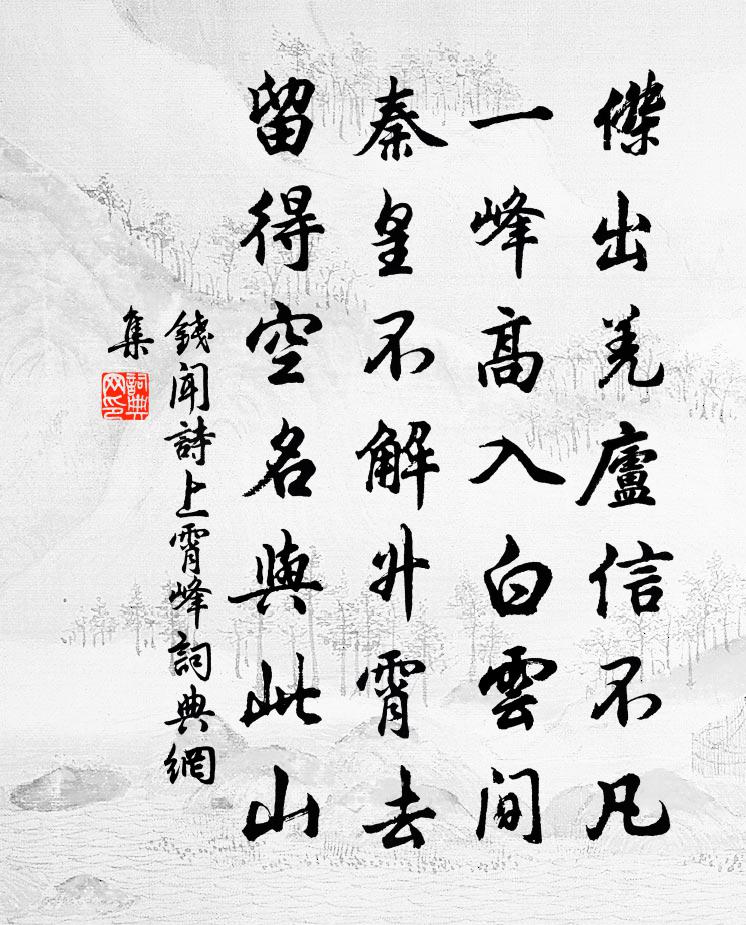 傑出羌廬信不凡
一峰高入白雲間
秦皇不解升霄去
留得空名與此山
錢聞詩上霄峰詞典網
集
詞典
网印